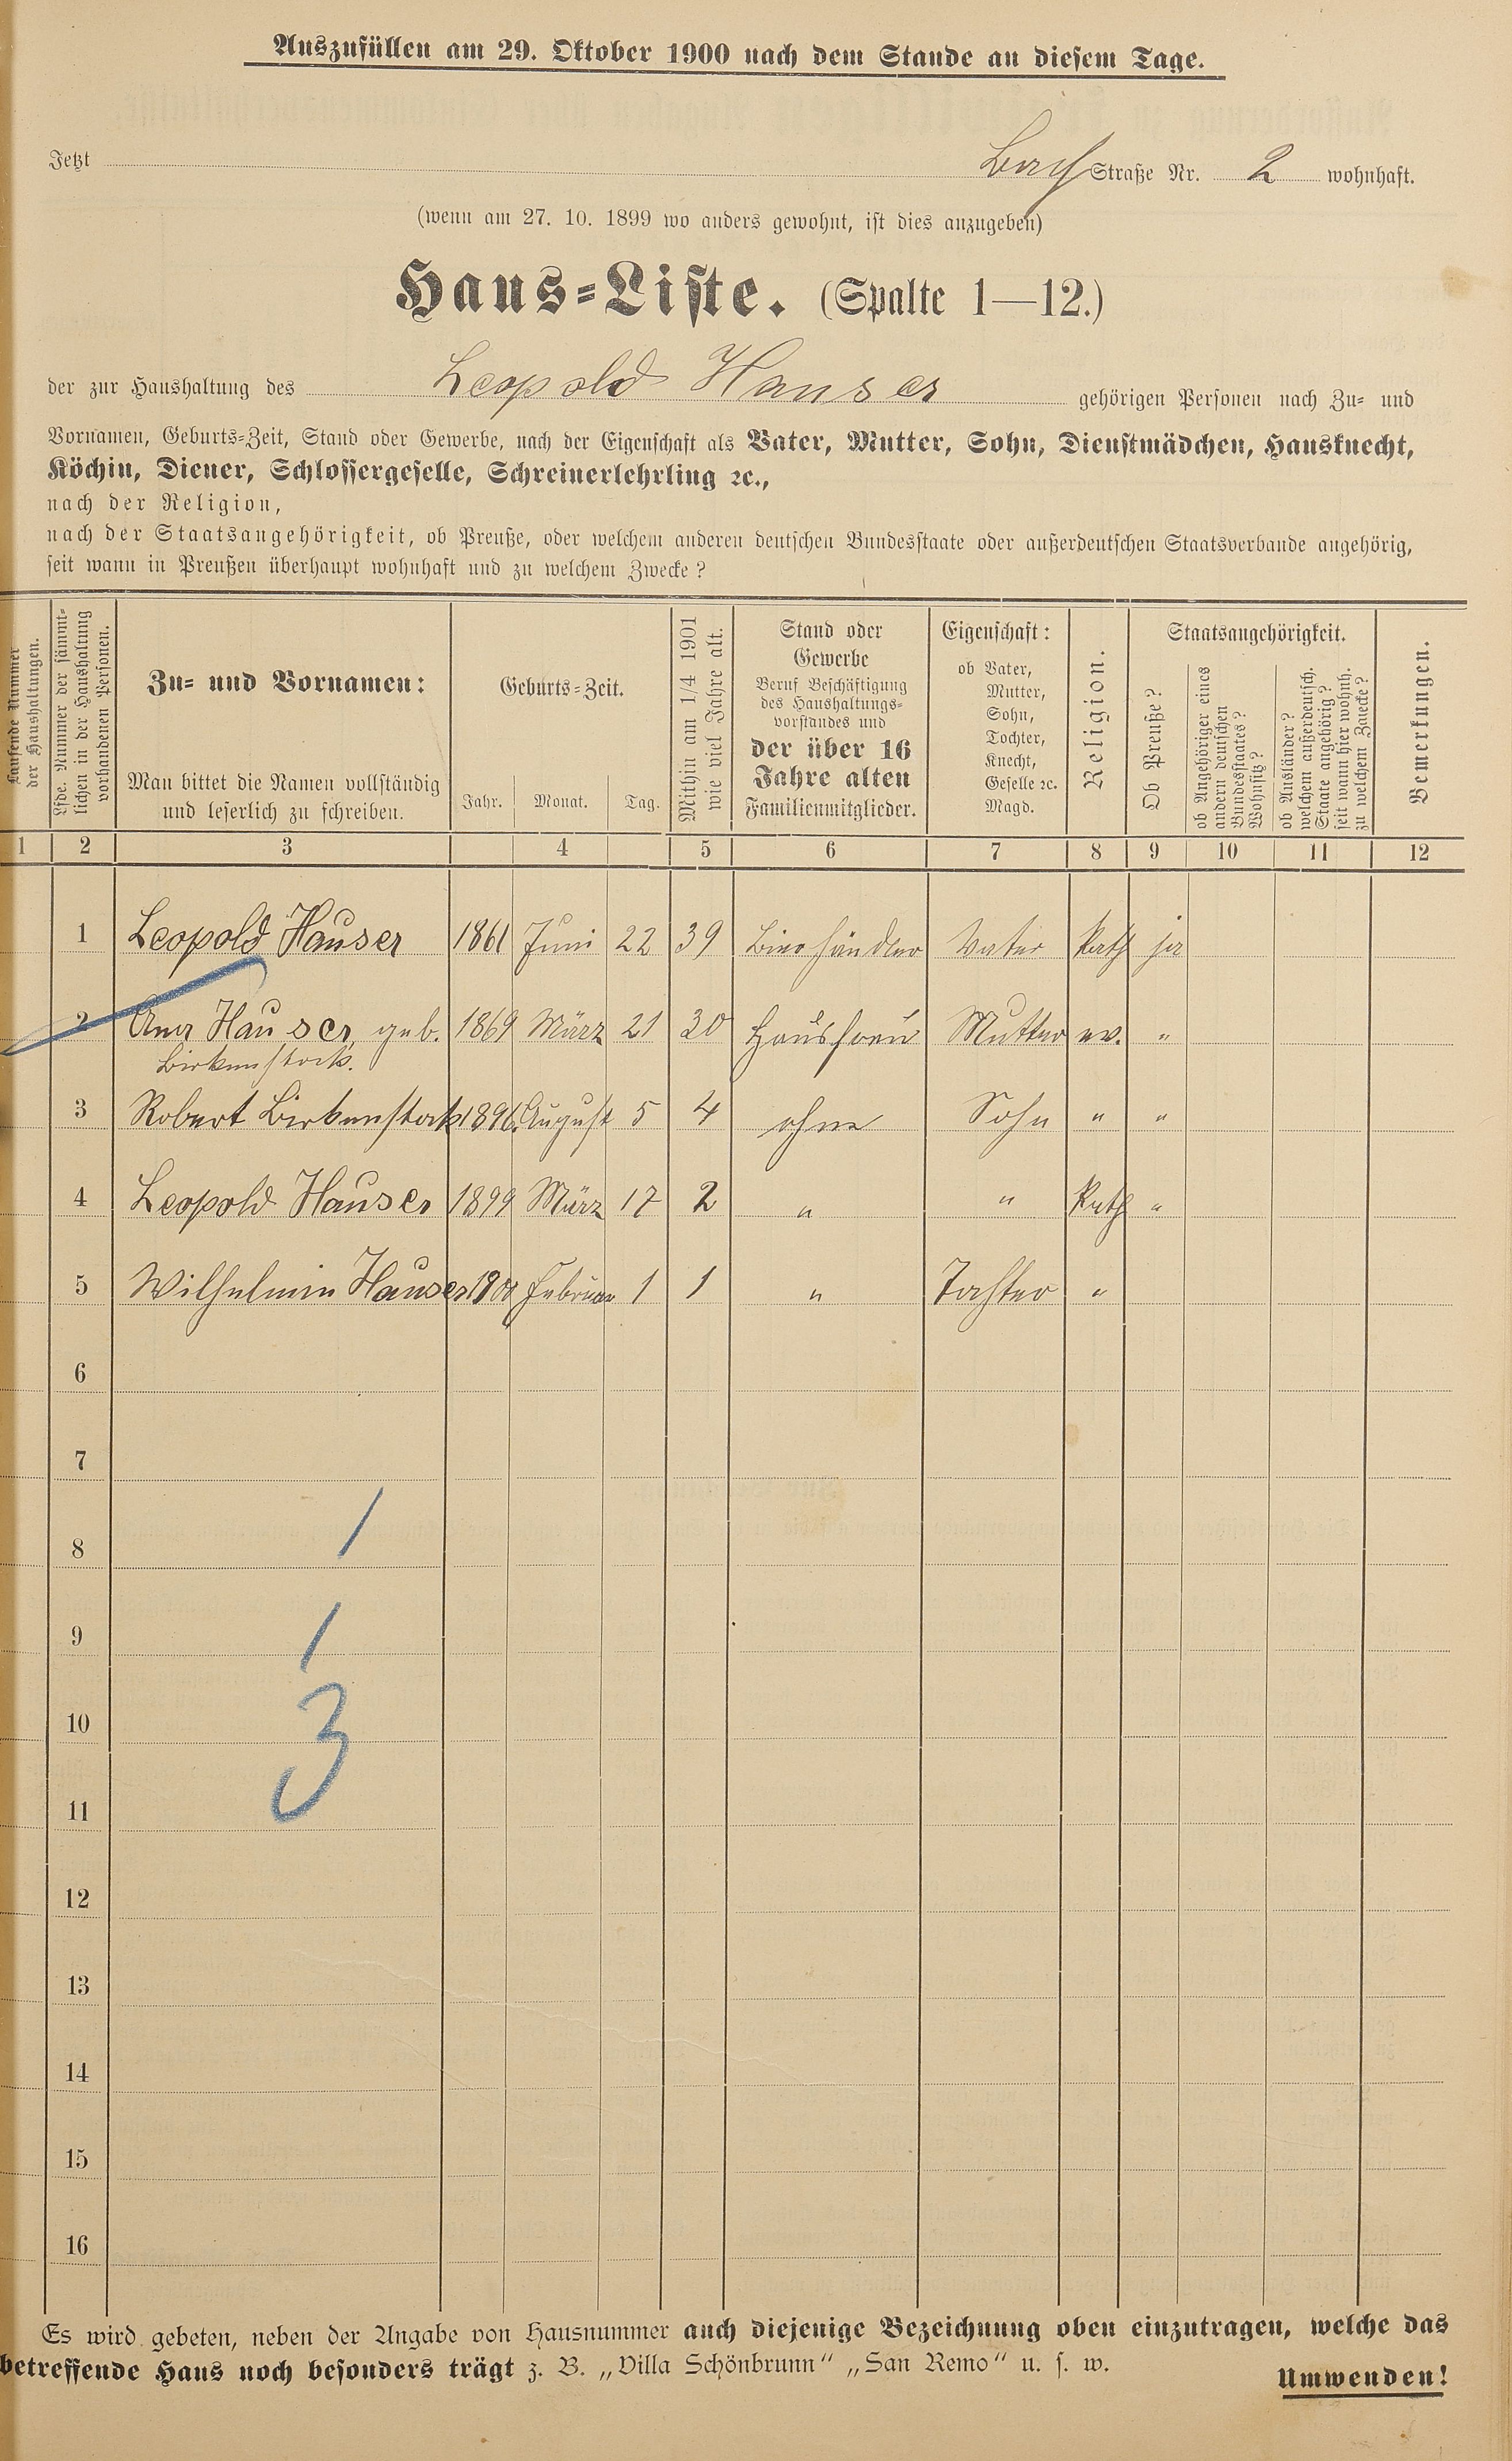 Auszufüllen am 29. Oktober 1900 nach dem Stande an diesem Tage.
Jetzt Bach Straße Nr. 2 wohnhaft.
(wenn am 27. 10. 1899 wo anders gewohnt, ist dies anzugeben)
Haus-Liste. (Spalte 1—12.)
der zur Haushaltung des Leopold Hauser gehörigen Personen nach Zu- und
Vornamen, Geburts-Zeit, Stand oder Gewerbe, nach der Eigenschaft als Vater, Mutter, Sohn, Dienstmädchen, Hausknecht,
Köchin, Diener, Schlossergeselle, Schreinerlehrling ꝛc.,
nach der Religion,
nach der Staatsangehörigkeit, ob Preuße, oder welchem anderen deutschen Bundesstaate oder außerdeutschen Staatsverbande angehörig,
seit wann in Preußen überhaupt wohnhaft und zu welchem Zwecke?
Laufende Nummer
der Haushaltungen.
Lfde. Nummer der sämmt-
lichen in der Haushaltung
vorhandenen Personen.
Zu- und Vornamen:
Man bittet die Namen vollständig
und leserlich zu schreiben.
Geburts-Zeit.
Jahr. Monat. Tag.
Mithin am 1/4 1901
wie viel Jahre alt.
Stand oder
Gewerbe
Beruf Beschäftigung
des Haushaltungs-
vorstandes und
der über 16
Jahre alten
Familienmitglieder.
Eigenschaft:
ob Vater,
Mutter,
Sohn,
Tochter,
Knecht,
Geselle ꝛc.
Magd.
Religion.
Staatsangehörigkeit.
Ob Preuße?
ob Angehöriger eines
andern deutschen
Bundesstaates?
Wohnsitz?
ob Ausländer?
welchem außerdeutsch.
Staate angehörig?
seit wann hier wohnh.
zu welchem Zwecke?
Bemerkungen.
1 2 3 4 5 6 7 8 9 10 11 12
1 Leopold Hauser 1861 Juni 22 39 Bierhändler Vater Kath ja
2 Ana Hauser, geb. 1869 März 21 30 Hausfrau Mutter ev. "
Birkenstock.
3 Robert Birkenstock 1896. August 5 4 ohne Sohn " "
4 Leopold Hauser 1899 März 17 2 " " Kath "
5 Wilhelmin Hauser 1900 Februar 1 1 " Tochter "
6
7
8 1
9 1
10 3
11
12
13
14
15
16
Es wird gebeten, neben der Angabe von Hausnummer auch diejenige Bezeichnung oben einzutragen, welche das
betreffende Haus noch besonders trägt z. B. „Villa Schönbrunn" „San Remo" u. s. w.
Umwenden!